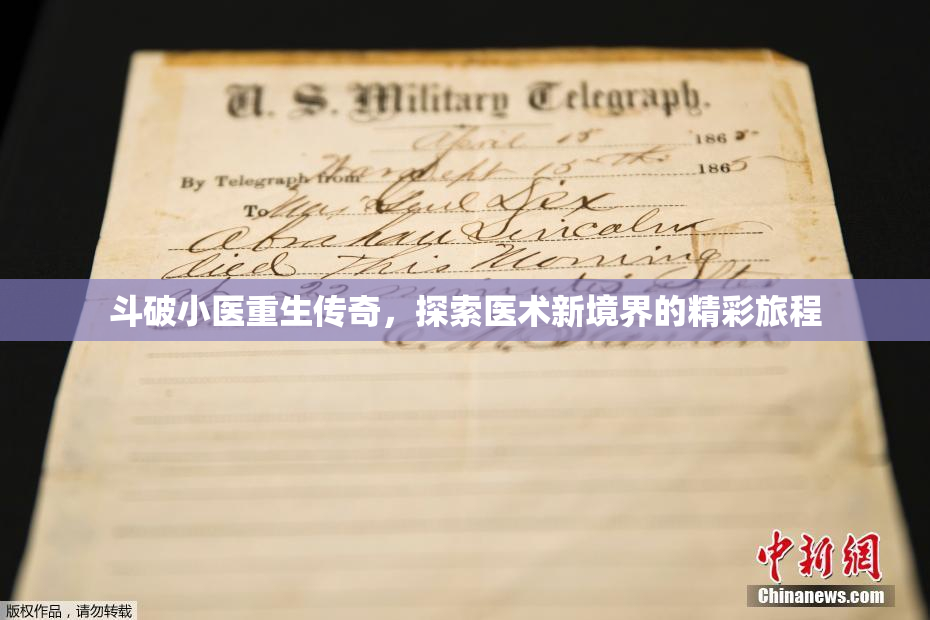 U. S. Military Telegraph.
April 15 1865
By Telegraph from War Dept 15th 1865
To Maj Genl Dix
Abraham Lincoln
died this morning
at 22 minutes after
斗破小医重生传奇，探索医术新境界的精彩旅程
E. M. Stanton
中新网
Chinanews.com
版权作品，请勿转载